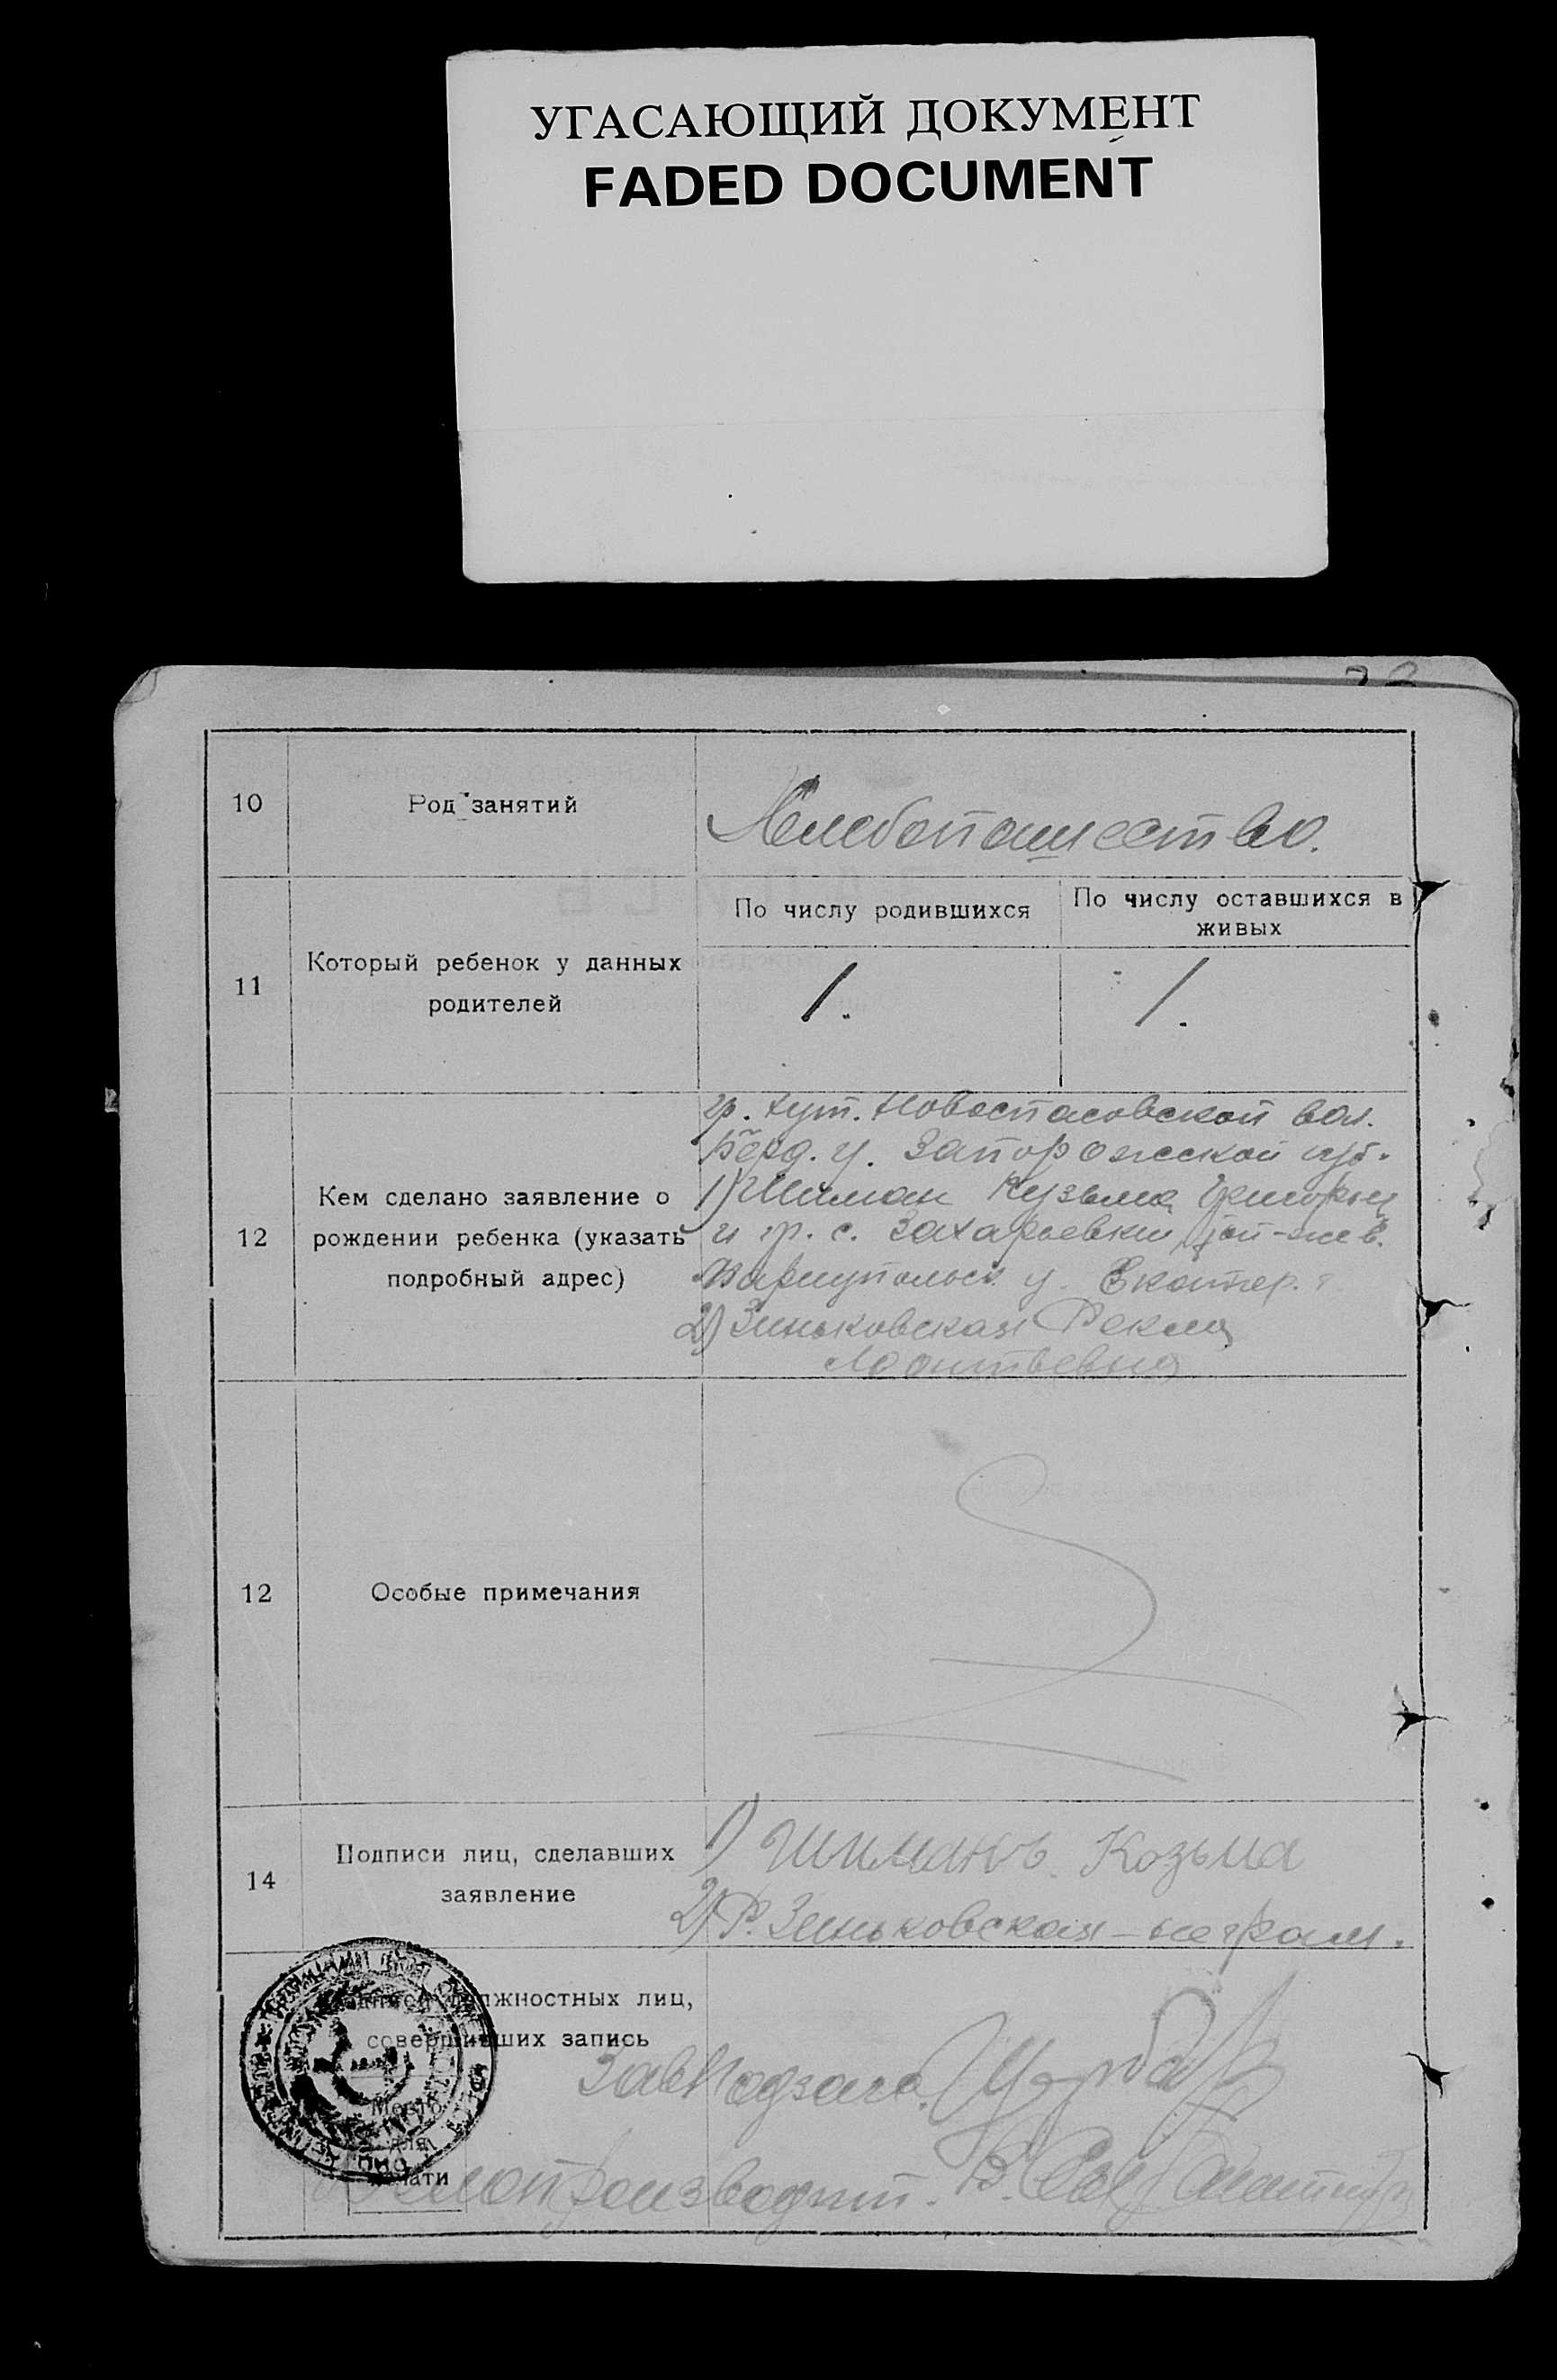 УГАСАЮЩИЙ ДОКУМЕНТ
FADED DOCUMENT
10
Род занятий
Хлебопашество.
11
Который ребенок у данных
родителей
По числу родившихся
По числу оставшихся в
живых
1.
1.
12
Кем сделано заявление о
рождении ребенка (указать
подробный адрес)
гр. хут. Новоспасовской вол.
Берд. у. Запорожской губ.
1) Шиман Кузьма
и гр. с. Захарьевки
Мариупольск. у. Екатер. г
2) Зиньковская Фекла
12
Особые примечания
14
Подписи лиц, сделавших
заявление
1) Шиманъ Козьма
2) Ф. Зиньковская – неграм.
должностных лиц,
совершивших запись
Место
для
печати
Зав Подзаго.
Делопроизводит. В.